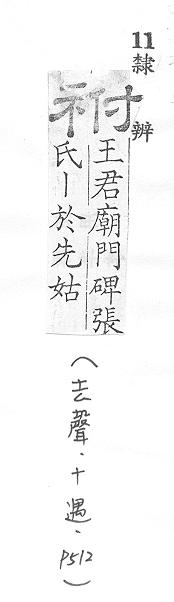 11
隸辨
祔
王君廟門碑張
氏丨於先姑
(去聲.十遇.P512)